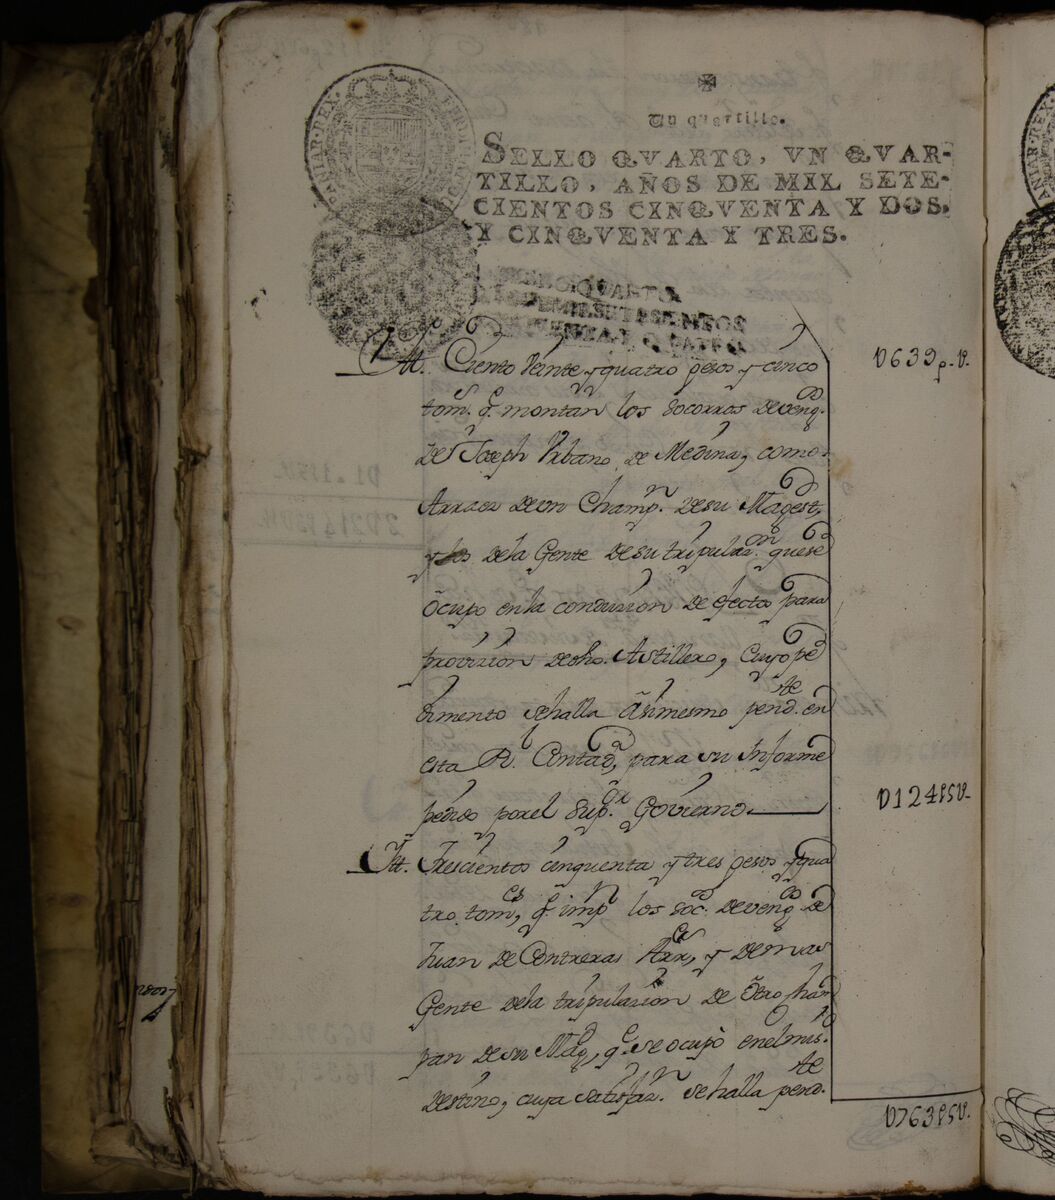 Un quartillo.
SELLO QVARTO, VN QVAR-
TILLO, AÑOS DE MIL SETE-
CIENTOS CINQVENTA Y DOS,
Y CINQVENTA Y TRES.
QUARTO
Y QUATRO
U639p.U.
Itt. Ciento Veinte y quatro pesos y cinco
tom.s q.e montan los socorros deveng.dos
de Joseph Urbano de Medina, como
Arraez de un Champ.n de su Magest.d
y los de la Gente de su tripulaz.on que se
ocupo en la conduzion de efectos para
provizion de dho. Astillero, Cuyo pe
dimento se halla asimesmo pend.te en
esta R.l Contad.a, para su Informe
pedido por el Sup.or Govierno
U124p5U-
Itt. Trescientos cinquenta y tres pesos y qua
tro tom.es, q.e imp.n los soc.os deveng.dos de
Juan de Contreras Arr.ez, y demas
Gente de la tripulazion de otro Cham
pan de su Mag.d, q.e se ocupò en el mis.mo
destino, cuya satisfaz.n se halla pend.te
U763p5U.